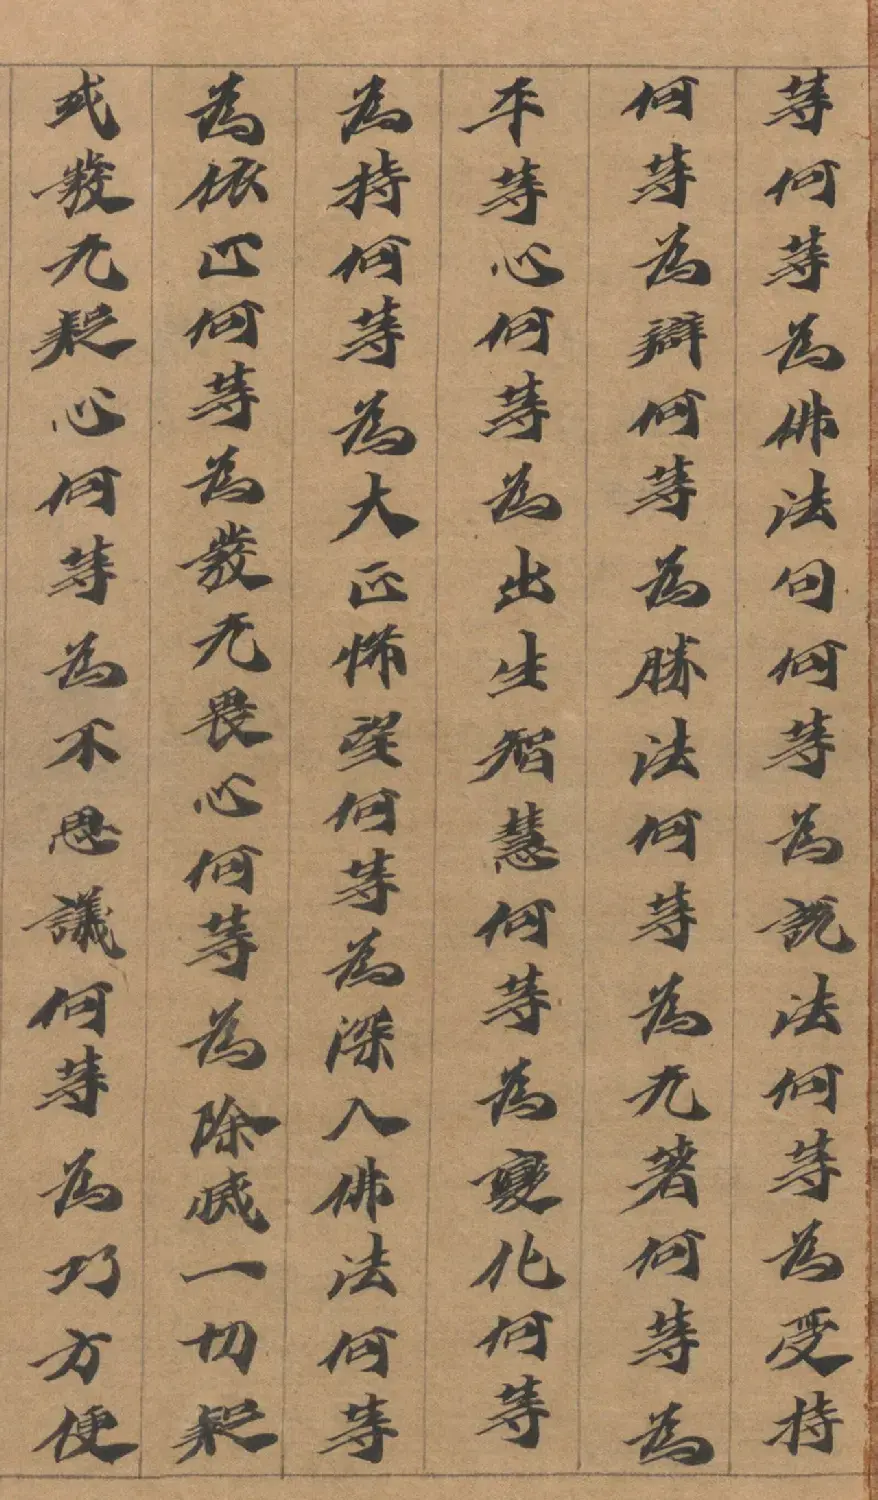 等何等為佛法句何等為說法何等為受持
何等為辯何等為勝法何等為无著何等為
平等心何等為出生智慧何等為變化何等
為持何等為大正悕望何等為深入佛法何等
為依止何等為發无畏心何等為除滅一切疑
或發无疑心何等為不思議何等為巧方便